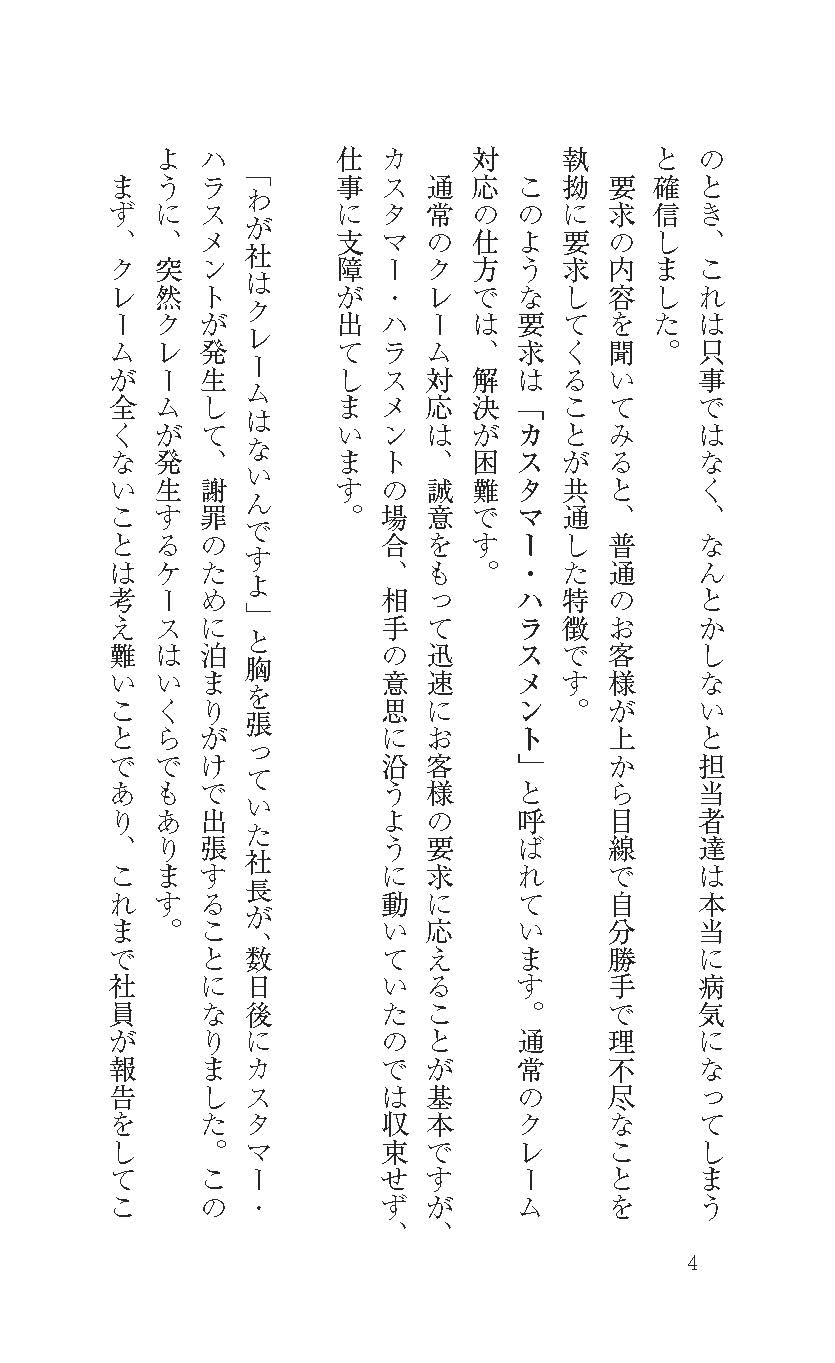 のとき、これは只事ではなく、なんとかしないと担当者達は本当に病気になってしまう
と確信しました。
要求の内容を聞いてみると、普通のお客様が上から目線で自分勝手で理不尽なことを
執拗に要求してくることが共通した特徴です。
このような要求は「カスタマー・ハラスメント」と呼ばれています。通常のクレーム
対応の仕方では、解決が困難です。
通常のクレーム対応は、誠意をもって迅速にお客様の要求に応えることが基本ですが、
カスタマー・ハラスメントの場合、相手の意思に沿うように動いていたのでは収束せず、
仕事に支障が出てしまいます。
「わが社はクレームはないんですよ」と胸を張っていた社長が、数日後にカスタマー・
ハラスメントが発生して、謝罪のために泊まりがけで出張することになりました。この
ように、突然クレームが発生するケースはいくらでもあります。
まず、クレームが全くないことは考え難いことであり、これまで社員が報告をしてこ
4